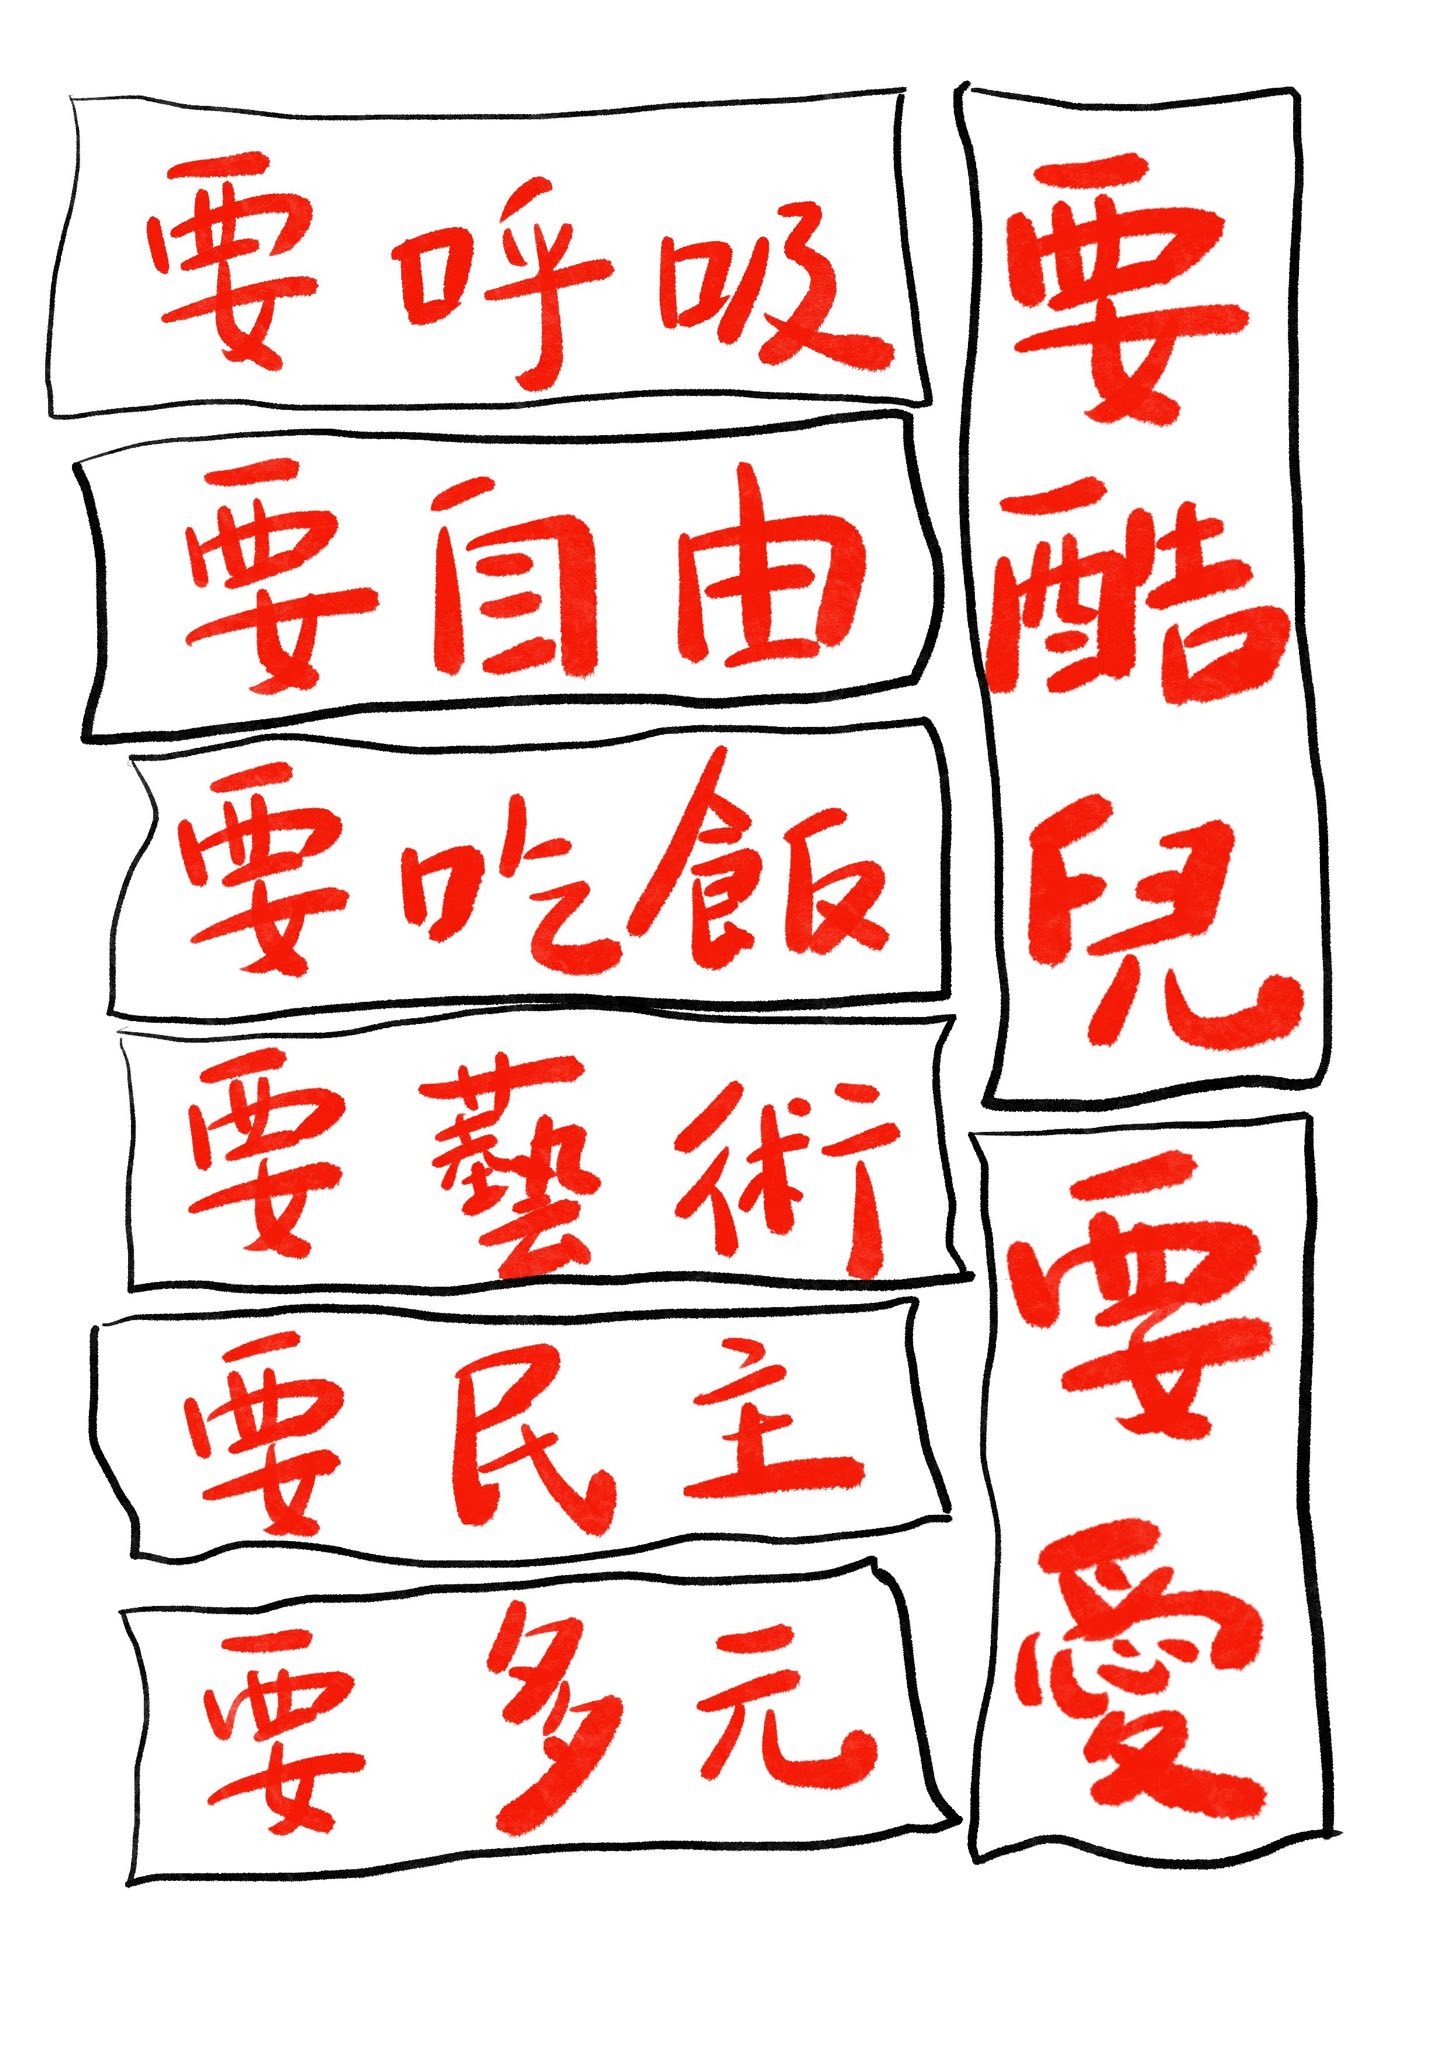 要呼吸
要自由
要吃飯
要藝術
要民主
要多元
要酷兒
要愛